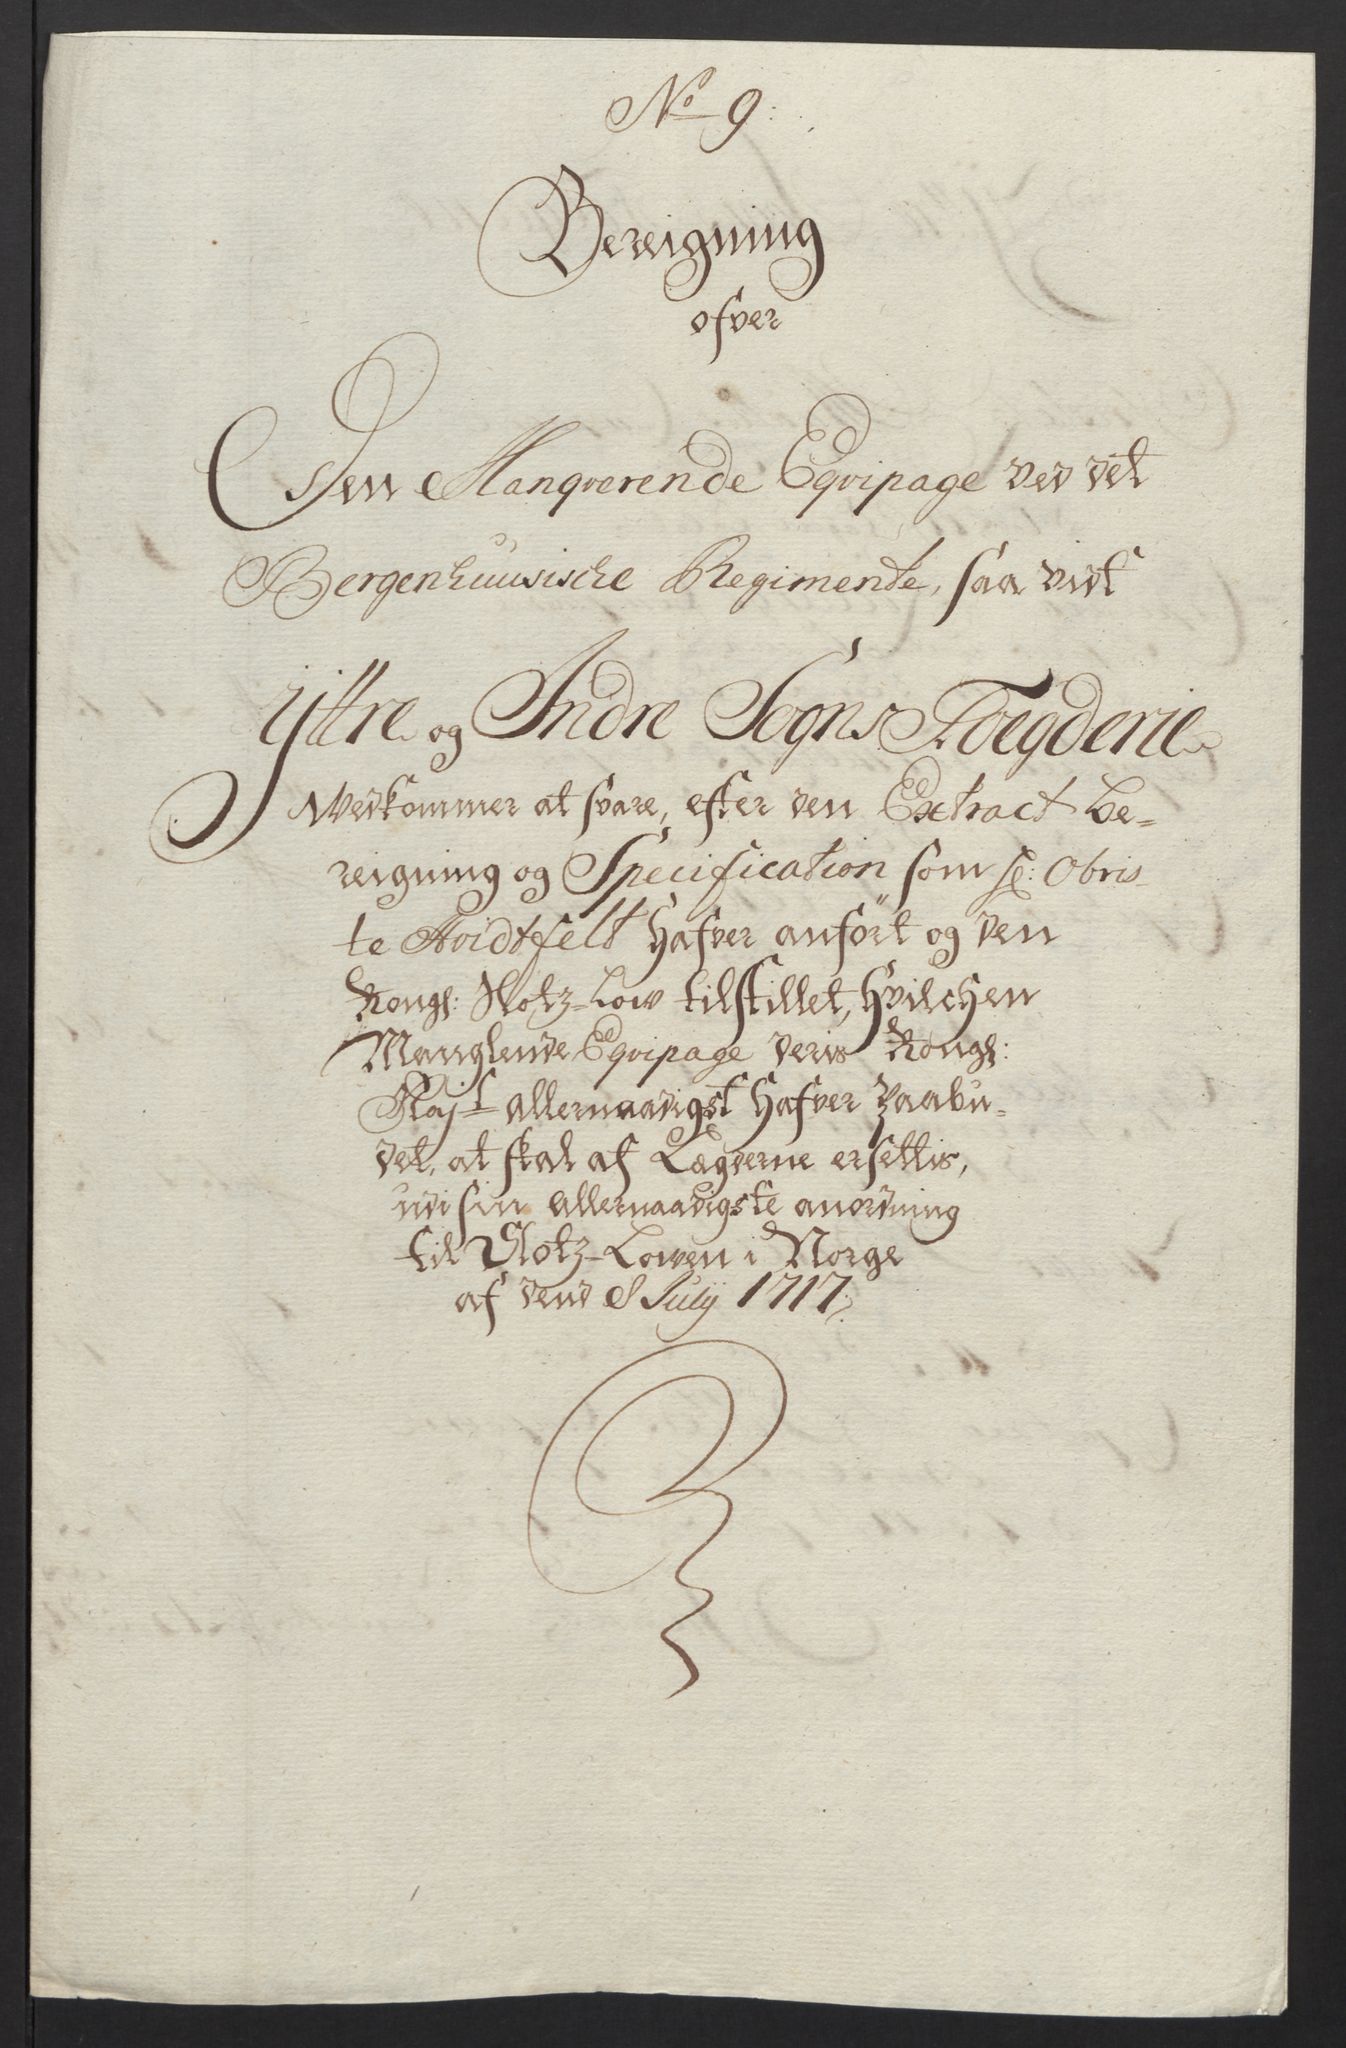 No 9:
Bereigning
ofver
Den Manqverende Eqvipage ved det
Bergenhuusische Regimente, saa vidt
Yttre og Indre Sogns Foegderie
Vedkommer at svare, efter den Extract be-
reigning og Specification som hr: Obris-
te Hvidtfelt hafver anført og den
Kongl: Slotz-Low tilstillet, hvilchen
Manglende Eqvipage deris Kongl:
Majt allernaadigst hafver paabu-
det, at skal af Lægderne ersettis,
udi sin allernaadigste anordning
til Slotz-Lowen i Norge
af dend 8 July 1717.